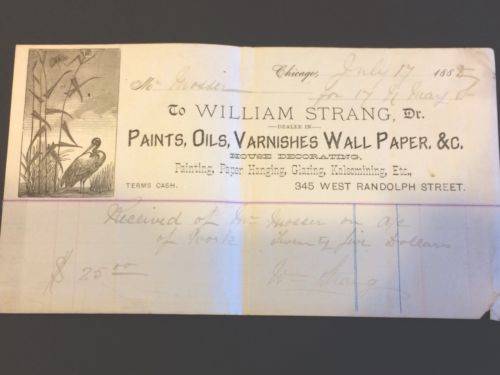 Chicago, July 17 1882
Mr Mosser
for 17 N May St
To WILLIAM STRANG, Dr.
DEALER IN
PAINTS, OILS, VARNISHES WALL PAPER, &C.
HOUSE DECORATING,
Painting, Paper Hanging, Glazing, Kalsomining, Etc.,
TERMS CASH. 345 WEST RANDOLPH STREET.
Received of Mr Mosser on a/c
of Work Twenty five Dollars
$ 25.00 Wm Strang